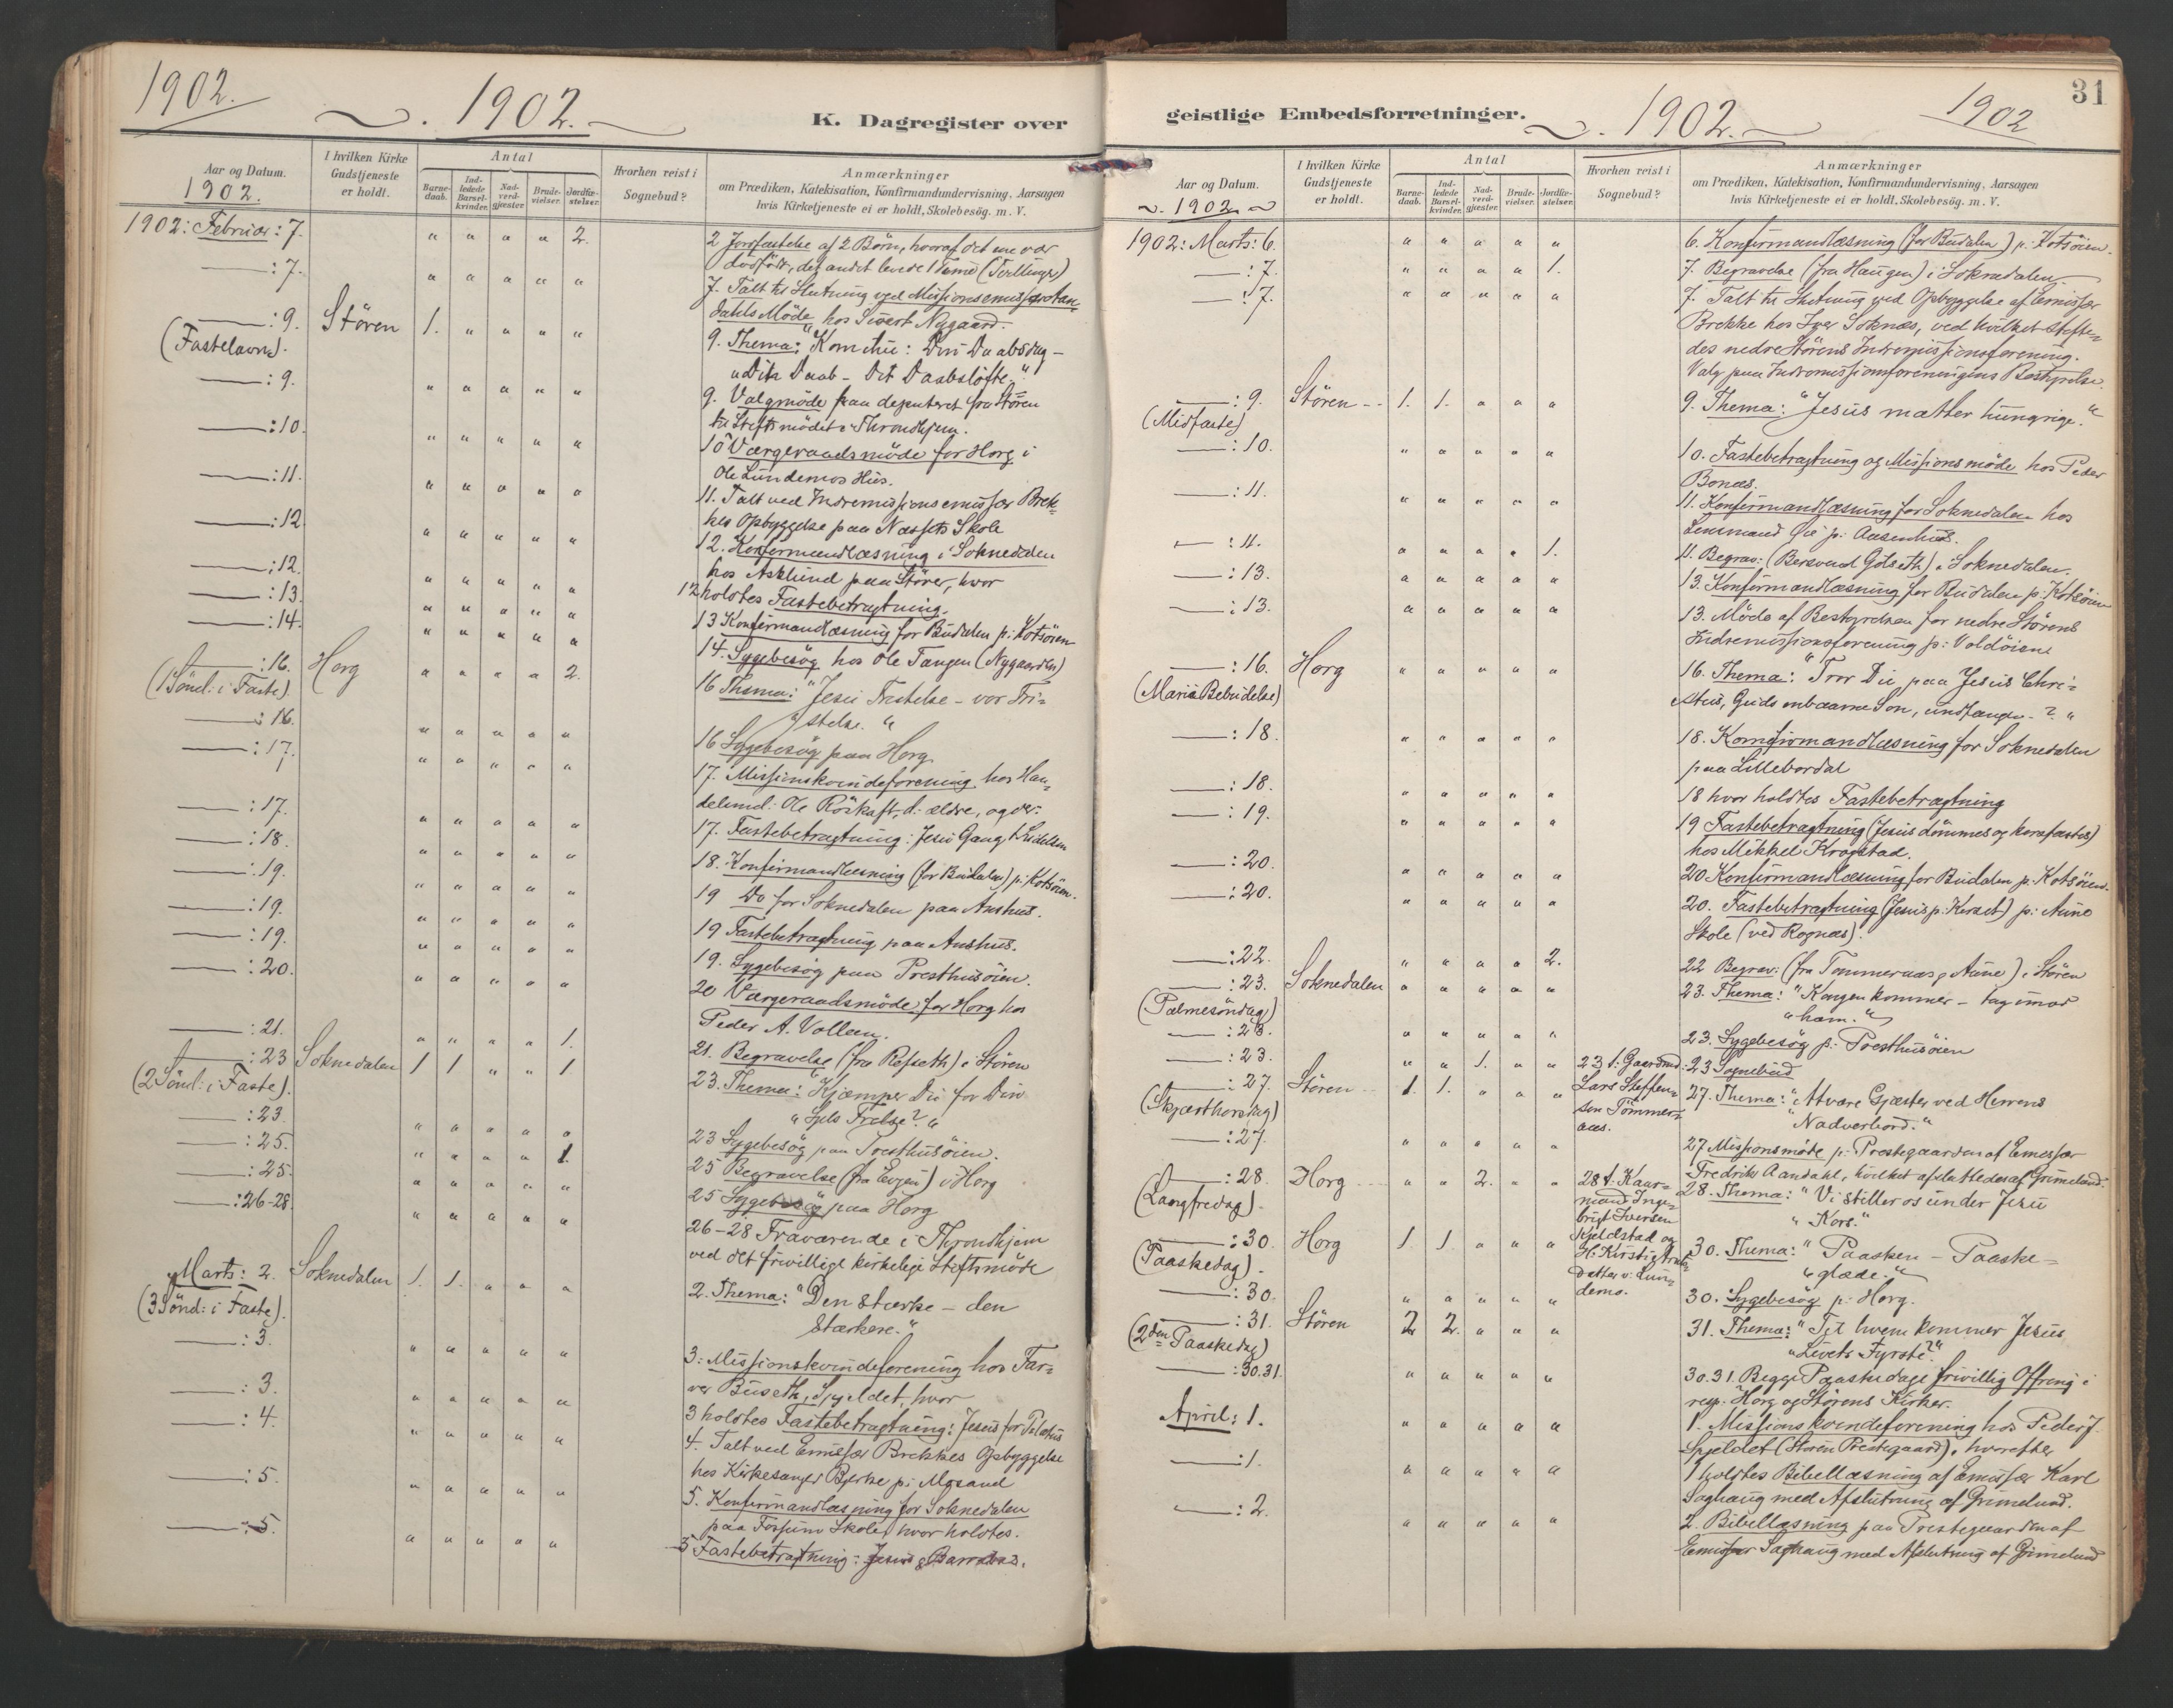 1902.
1902.
K. Dagregister over
Aar og Datum.
1902.
I hvilken Kirke Gudstjeneste er holdt.
Antal
Barnedaab.
Indledede Barselkvinder.
Nadverdgjæster.
Brudevielser.
Jordfæstelser.
Hvorhen reist i Sognebud?
Anmærkninger
om Prædiken, Katekisation, Konfirmandundervisning, Aarsagen
hvis Kirketjeneste ei er holdt, Skolebesög. m. V.
1902: Februar: 7. " " " " 2. 2 Jordfæstelse af 2 Börn, hvoraf det ene var
dödfödt, det andet levede 1 Time (Tvillinger)
: 7. " " " " " 7. Talt til Slutning ved Missionsemissær Aan
dahls Möde hos Sivert Nygaard.
: 9. Stören 1. " " " " 9. Thema: "Kom ihu: Din Daabsdag –
(Fastelavn). "Din Daab – Dit Daabslöfte."
: 9. " " " " " 9. Valgmöde paa deputeret fra Stören
til Stiftsmödet i Throndhjem.
: 10. " " " " " 10 Værgeraadsmöde for Horg i
Ole Lundemos Hus.
: 11. " " " " " 11. Talt ved Indremissionsemissær Brek-
kes Opbyggelse paa Næssets Skole
: 12 " " " " " 12. Konfirmandlæsning i Soknedalen
hos Asklund paa Störer, hvor
: 12. " " " " " 12 holdtes Fastebetragtning.
: 13. " " " " " 13 Konfirmandlæsning for Budalen p: Kotsöien
: 14. " " " " " 14. Sygebesög hos Ole Tangen (Nygaarden)
: 16. Horg " " " " 2. 16 Thema: "Jesu Fristelse – vor Fri-
(1 Sönd: i Faste). stelse."
: 16. " " " " " 16 Sygebesög paa Horg.
: 17. " " " " " 17. Missionskvindeforening hos Han-
delsmd: Ole Röskaft, d: ældre, og der
: 17. " " " " " 17. Fastebetragtning: Jesu Gang t. Lidelsen
: 18. " " " " " 18. Konfirmandlæsning (for Budalen) p: Kotsöien.
: 19. " " " " " 19 Do for Soknedalen paa Anshus.
: 19. " " " " " 19 Fastebetragtning paa Anshus.
: 19. " " " " " 19. Sygebesög paa Presthusöien.
: 20. " " " " " 20 Værgeraadsmöde for Horg hos
Peder A. Vollan.
: 21. " " " " 1. 21. Begravelse (fra Refseth) i Stören
: 23 Soknedalen 1 1 " " 1 23. Thema: "Kjæmper Du for Din
(2 Sönd: i Faste). "Sjels Frelse?"
: 23. " " " " " 23 Sygebesög paa Presthusöien.
: 25. " " " " 1. 25 Begravelse (fra Evjen) i Horg
: 25. " " " " " 25 Sygebesög paa Horg
: 26-28 " " " " " 26-28 Fraværende i Throndhjem
ved det frivillige kirkelige Stiftsmöde
Marts: 2. Soknedalen 1. 1. " " " 2. Thema: "Den Stærke – den
(3 Sönd: i Faste). Stærkere."
: 3. " " " " " 3: Missionskvindeforening hos Far-
ver Buseth, Spjeldet, hvor
: 3. " " " " " 3 holdtes Fastebetragtning: Jesus for Pilatus
: 4. " " " " " 4. Talt ved Emissær Brekkes Opbyggelse
hos Kirkesanger Bjerke p: Mosand
: 5. " " " " " 5. Konfirmandlæsning for Soknedalen
paa Fossum Skole, hvor holdtes.
: 5. " " " " " 5 Fastebetragtning: Jesus & Barrabas.
31
geistlige Embedsforretninger.
1902.
1902
Aar og Datum.
1902
I hvilken Kirke Gudstjeneste er holdt.
Antal
Barnedaab.
Indledede Barselkvinder.
Nadverdgjæster.
Brudevielser.
Jordfæstelser.
Hvorhen reist i Sognebud?
Anmærkninger
om Prædiken, Katekisation, Konfirmandundervisning, Aarsagen
hvis Kirketjeneste ei er holdt, Skolebesög. m. V.
1902: Marts: 6. " " " " " 6. Konfirmandlæsning (for Budalen) p: Kotsöien.
: 7. " " " " 1. 7. Begravelse (fra Haugen) i Soknedalen
: 7. " " " " " 7. Talt til Slutning ved Opbyggelse af Emissær
Brekke hos Iver Soknæs, ved hvilket stifte-
des nedre Störens Indremissionsforening.
Valg paa Indremissionsforeningens Bestyrelse.
: 9. Stören 1. 1. " " " 9. Thema: "Jesus mætter hungrige."
(Midfaste)
: 10. " " " " " 10. Fastebetragtning og Missionsmöde hos Peder
Bonæs.
: 11. " " " " " 11. Konfirmandlæsning for Soknedalen hos
Lensmand Öie p: Aasenhus.
: 11. " " " " 1. 11. Begrav: (Bersvend Gotseth) i Soknedalen.
: 13. " " " " " 13. Konfirmandlæsning for Budalen p: Kotsöien
: 13. " " " " " 13. Möde af Bestyrelsen for nedre Störens
Indremissionsforening p: Voldöiene
: 16. Horg " " " " " 16. Thema: "Tror Du paa Jesus Chri-
(Mariæ Bebudelse) stus, Guds enbaarne Sön, undfangen – ?"
: 18. " " " " " 18. Konfirmandlæsning for Soknedalen
paa Lillebordal
: 18. " " " " " 18 hvor holdtes Fastebetragtning
: 19. " " " " " 19 Fastebetragtning (Jesus dömmes og korsfæstes)
hos Mikkel Krogstad.
: 20. " " " " " 20 Konfirmandlæsning for Budalen p: Kotsöien.
: 20. " " " " " 20. Fastebetragtning (Jesus p: Korset) p: Aune
Skole (ved Rognæs).
: 22. " " " " 2. 22 Begrav: (fra Tommernaas & Aune) i Stören
: 23. Soknedalen " " " " " 23. Thema: "Kongen kommer – tag imod
(Palmesöndag) "ham."
: 23. " " " " " 23. Sygebesög p: Presthusöien
: 23. " " 1. " " 23 t: Gaardmd: 23 Sognebud
Lars Steffen-
sen Tömmer-
aas.
: 27. Stören 1. 1. " " " 27. Thema: "At være Gjæster ved Herrens
(Skjærthorsdag) "Nadverbord."
: 27. " " " " " 27 Missionsmöde p: Prestegaarden af Emissær
Fredrik Aandahl, hvilket afsluttedes af Grimelund.
: 28. Horg " " 2. " " 28 t: Kaar- 28. Thema: "Vi stiller os under Jesu
(Langfredag). mand Inge- "Kors."
brigt Iversen
Kjeldstad og
: 30. Horg 1 1 " " " 30. Thema: "Paasken – Paaske-
(Paaskedag). "glæde."
datter v: Lun-
demo.
: 30. " " " " " 30. Sygebesög p: Horg.
: 31. Stören 2 2. " " " 31. Thema: "Til hvem kommer Jesus
(2den Paaskedag) "Livets Fyrste?"
: 30.31. " " " " " 30.31. Begge Paaskedage frivillig Offring i
resp: Horg og Störens Kirker.
April: 1. " " " " " 1. Missionskvindeforening hos Peder J.
Spjeldet (Stören Prestegaard), hvorefter
: 1. " " " " " 1 holdtes Bibellæsning af Emissær Karl
Saghaug med Afslutning af Grimelund.
: 2. " " " " " 2. Bibellæsning paa Prestegaarden af
Emissær Saghaug med Afslutning af Grimelund